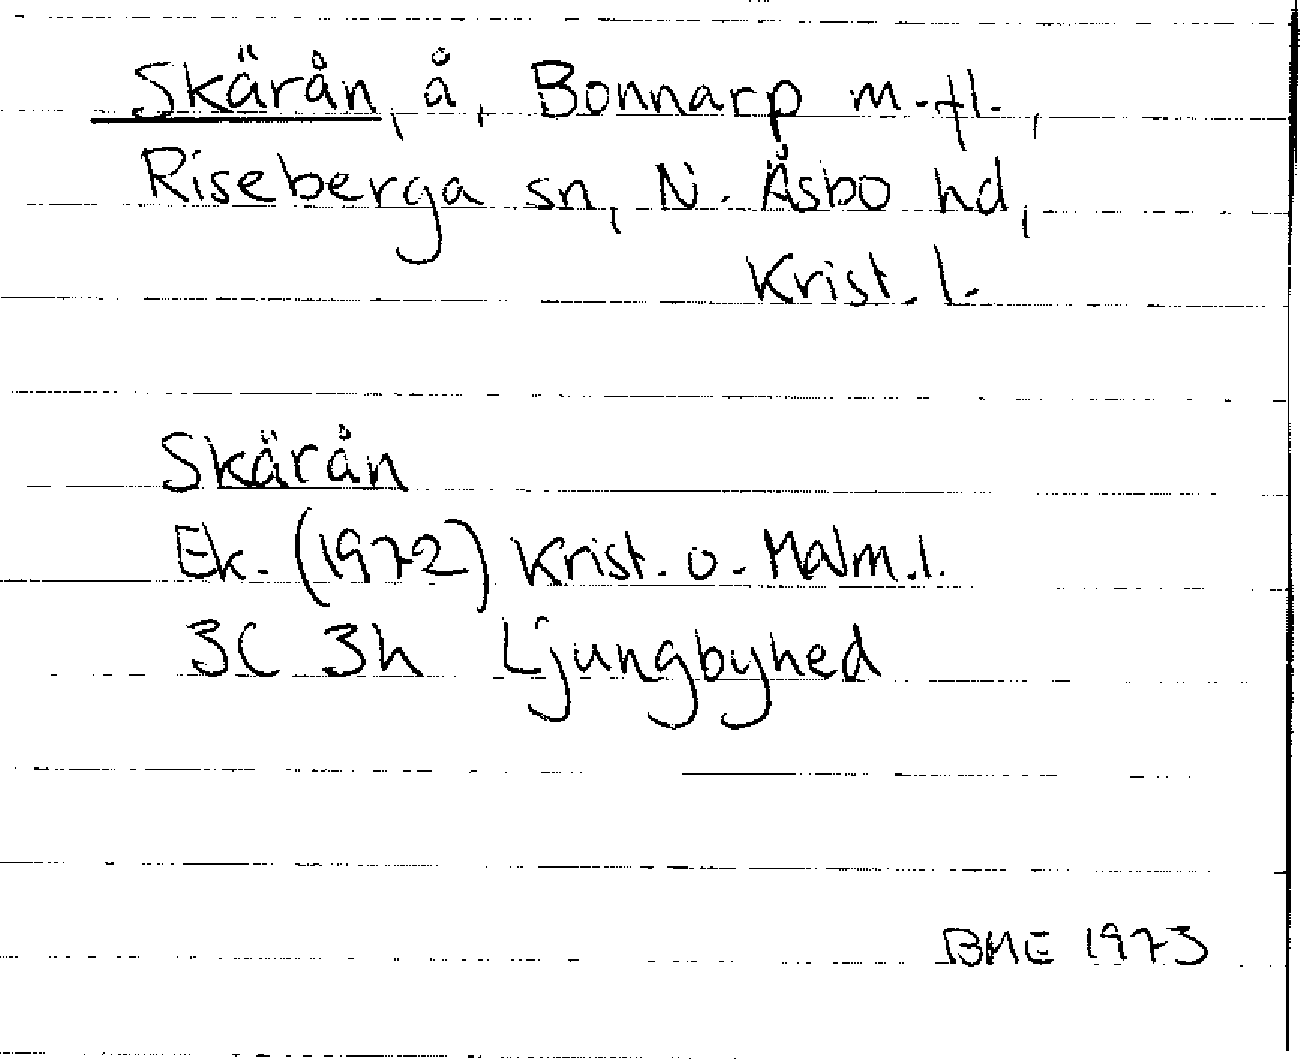 Skärån, å, Bonnarp m.fl.,
Riseberga sn, N. Åsbo hd,
Krist. l.
Skärån
Ek. (1972) Krist. o. Malm. l.
3C 3h Ljungbyhed
BME 1973